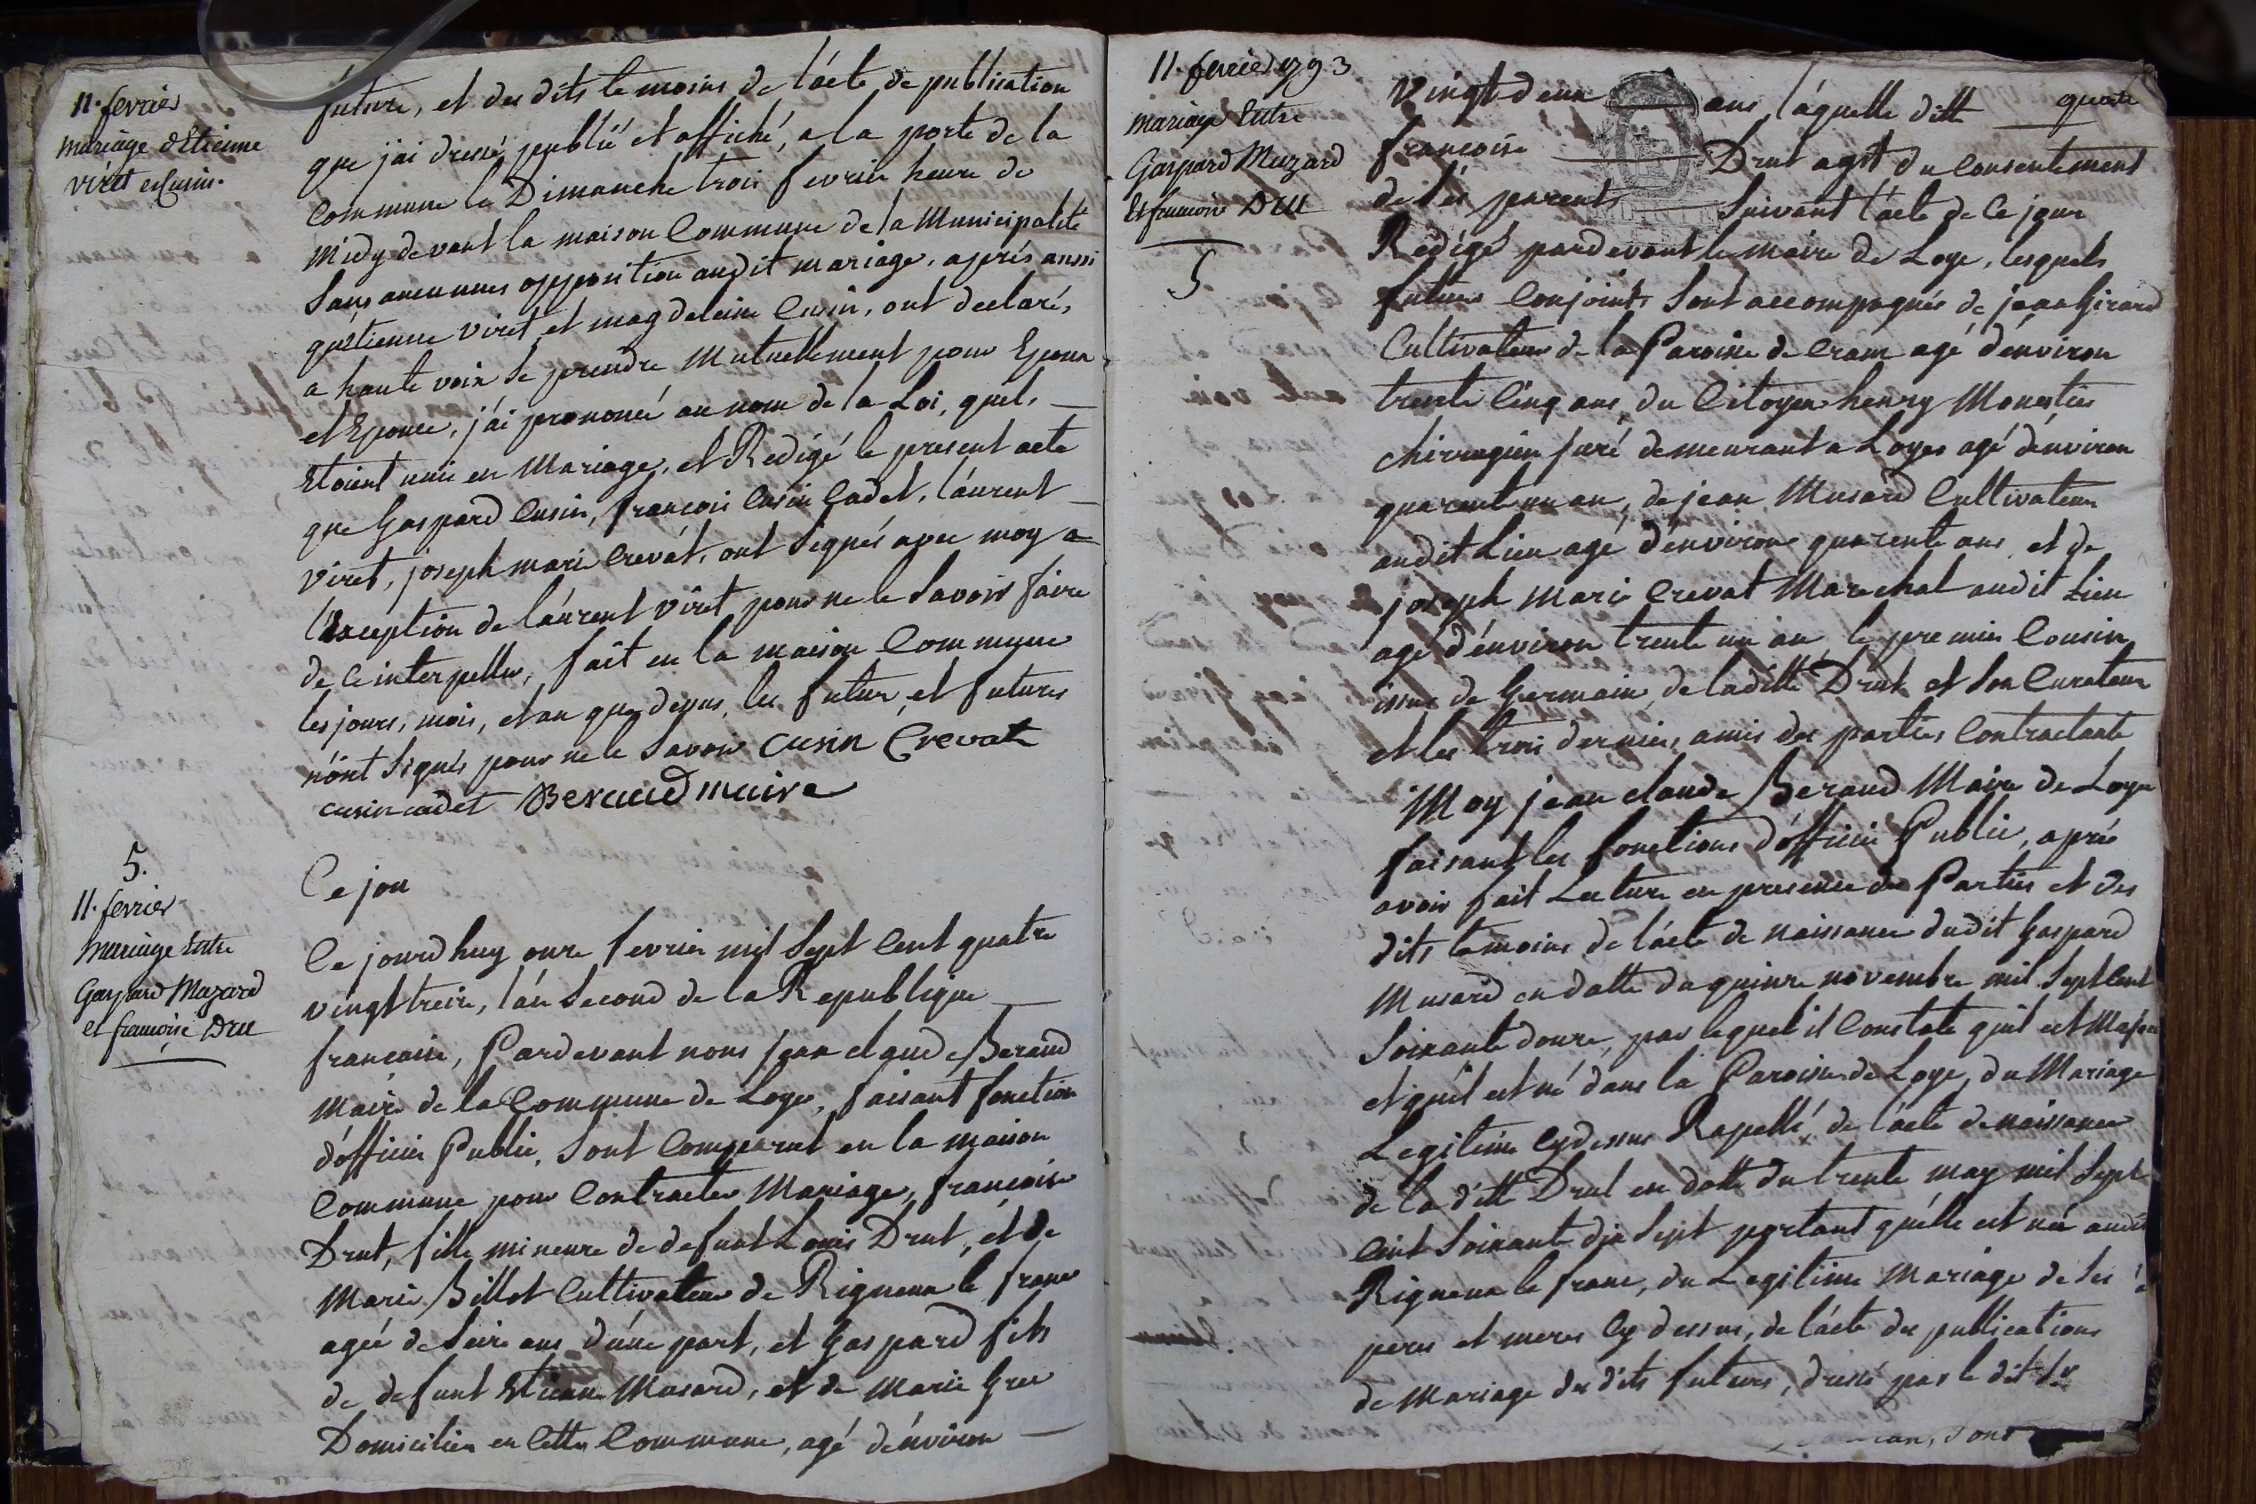 11. fevrier
mariage d'Etienne
viret et Cusin.
future, et des dits temoins de l'acte de publication
que j'ai dressé, publié et affiché, a la porte de la
Commune le Dimanche trois fevrier heure de
Midy devant la maison Commune de la Municipalité
Sans aucunnes opposition audit mariage, aprés aussi
qu'Etienne viret et magdeleine Cusin, ont declaré,
a haute voix Se prendre Mutuellement pour Epoux
et Epouse, j'ai prononcé au nom de la Loi, quils
Etoient unis en Mariage, et Redigé le present acte
que Gaspard Cusin, francois Cusin Cadet, laurent
Viret, joseph marie Crevat, ont Signés avec moy a
l'Exception de laurent viret pour ne le Savoir faire
de ce interpellés, fait en la maison Commune
les jours, mois, et an que dessus, les futur et futures
n'ont Signés pour ne le Savoir Cusin Crevat
cusin cadet Beraud maire
5.
11. fevrier
Mariage Entre
Gaspard Mazard
et francoise Dru
Ce jou
Ce jourd huy onze fevrier mil Sept Cent quatre
vingt treize, l'an Second de la Republique
francaise, Pardevant nous jean claude Beraud
Maire de la Commune de Loye, faisant fonction
d'officier Public, Sont Comparut en la maison
Commune pour Contracter Mariage, francoise
Drut, fille mineure de defunt Louis Drut, et de
Marie Billot Cultivateur de Rigneux le franc
agée de Seize ans d'une part, et Gaspard fils
de defunt Etienne Musard, et de Marie Greu
Domicilier en Cette Commune, agé d'environ
11. fevrier 1793
mariage Entre
Gaspard Muzard
Et francoise Dru
5
quatre
Vingt deux ans, laquelle ditte
francoise Drut agit du Consentement
de Ses parents Suivant l'acte de Ce jour
Redigé pardevant le maire de Loye, lesquels
futurs Conjoints Sont accompagnés de jean Girard
Cultivateur de la Paroisse de Crans agé d'environ
trente Cinq ans, du Citoyen henry Monestier
chirurgien juré demeurant a Loyes agé d'environ
quarente un an, de jean Musard Cultivateur
audit Lieu agé d'environ quarente ans, et de
joseph Marie Crevat Marechal audit Lieu
agé d'environ trente un an, le premier Cousin
issus de Germain, de laditte Drut et Son Curateur
et les trois derniers, amis des parties Contractante
Moy jean claude Beraud Maire de Loye
faisant les fonctions d'officier Public, aprés
avoir fait Lecture en presence des Parties et des
dits temoins de l'acte de naissance dudit Gaspard
Musard en datte du quinze novembre mil Sept Cent
Soixante douze, par lequel il Constate quil est Majeur
et qu'il est né dans la Paroisse de Loye, du Mariage
Legitime Cydessus Rapellé, de l'acte de naissance
de la ditte Drut en datte du trente may mil Sept
Cent Soixante dix Sept portant qu'elle est née audit
Rigneux le franc, du Legitime Mariage de Ses
peres et meres Cy dessus, de l'acte des publications
de Mariage des dits futurs, dressé par le dit Sr